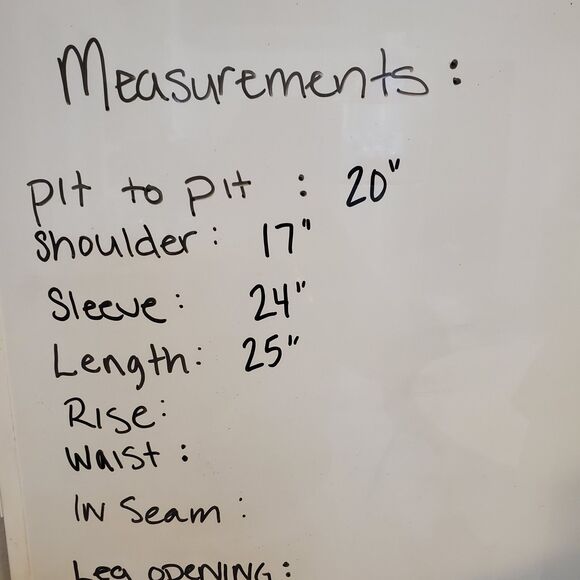 Measurements:
pit to pit : 20"
Shoulder: 17"
Sleeve: 24"
Length: 25"
Rise:
Waist:
IN Seam:
Leg OPENING: